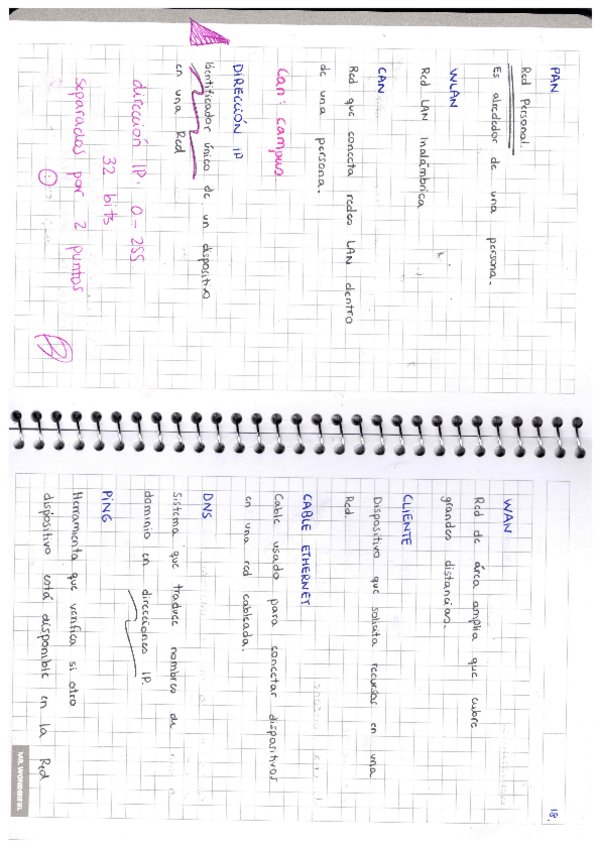 PAN
Red Personal.
Es alrededor de una persona.
WLAN
Red LAN Inalámbrica
CAN
Red que conecta redes LAN dentro
de una persona.
Can: campus
DIRECCIÓN IP
Identificador único de un dispositivo
en una Red
dirección IP: 0 - 255
32 bits
separados por 2 puntos
18.
WAN
Red de área amplia que cubre
grandes distancias.
CLIENTE
Dispositivo que solicita recursos en una
Red.
CABLE ETHERNET
Cable usado para conectar dispositivos
en una red cableada.
DNS
Sistema que traduce nombres de
dominio en direcciones IP.
PING
Herramienta que verifica si otro
dispositivo está disponible en la Red
MR. WONDERFUL